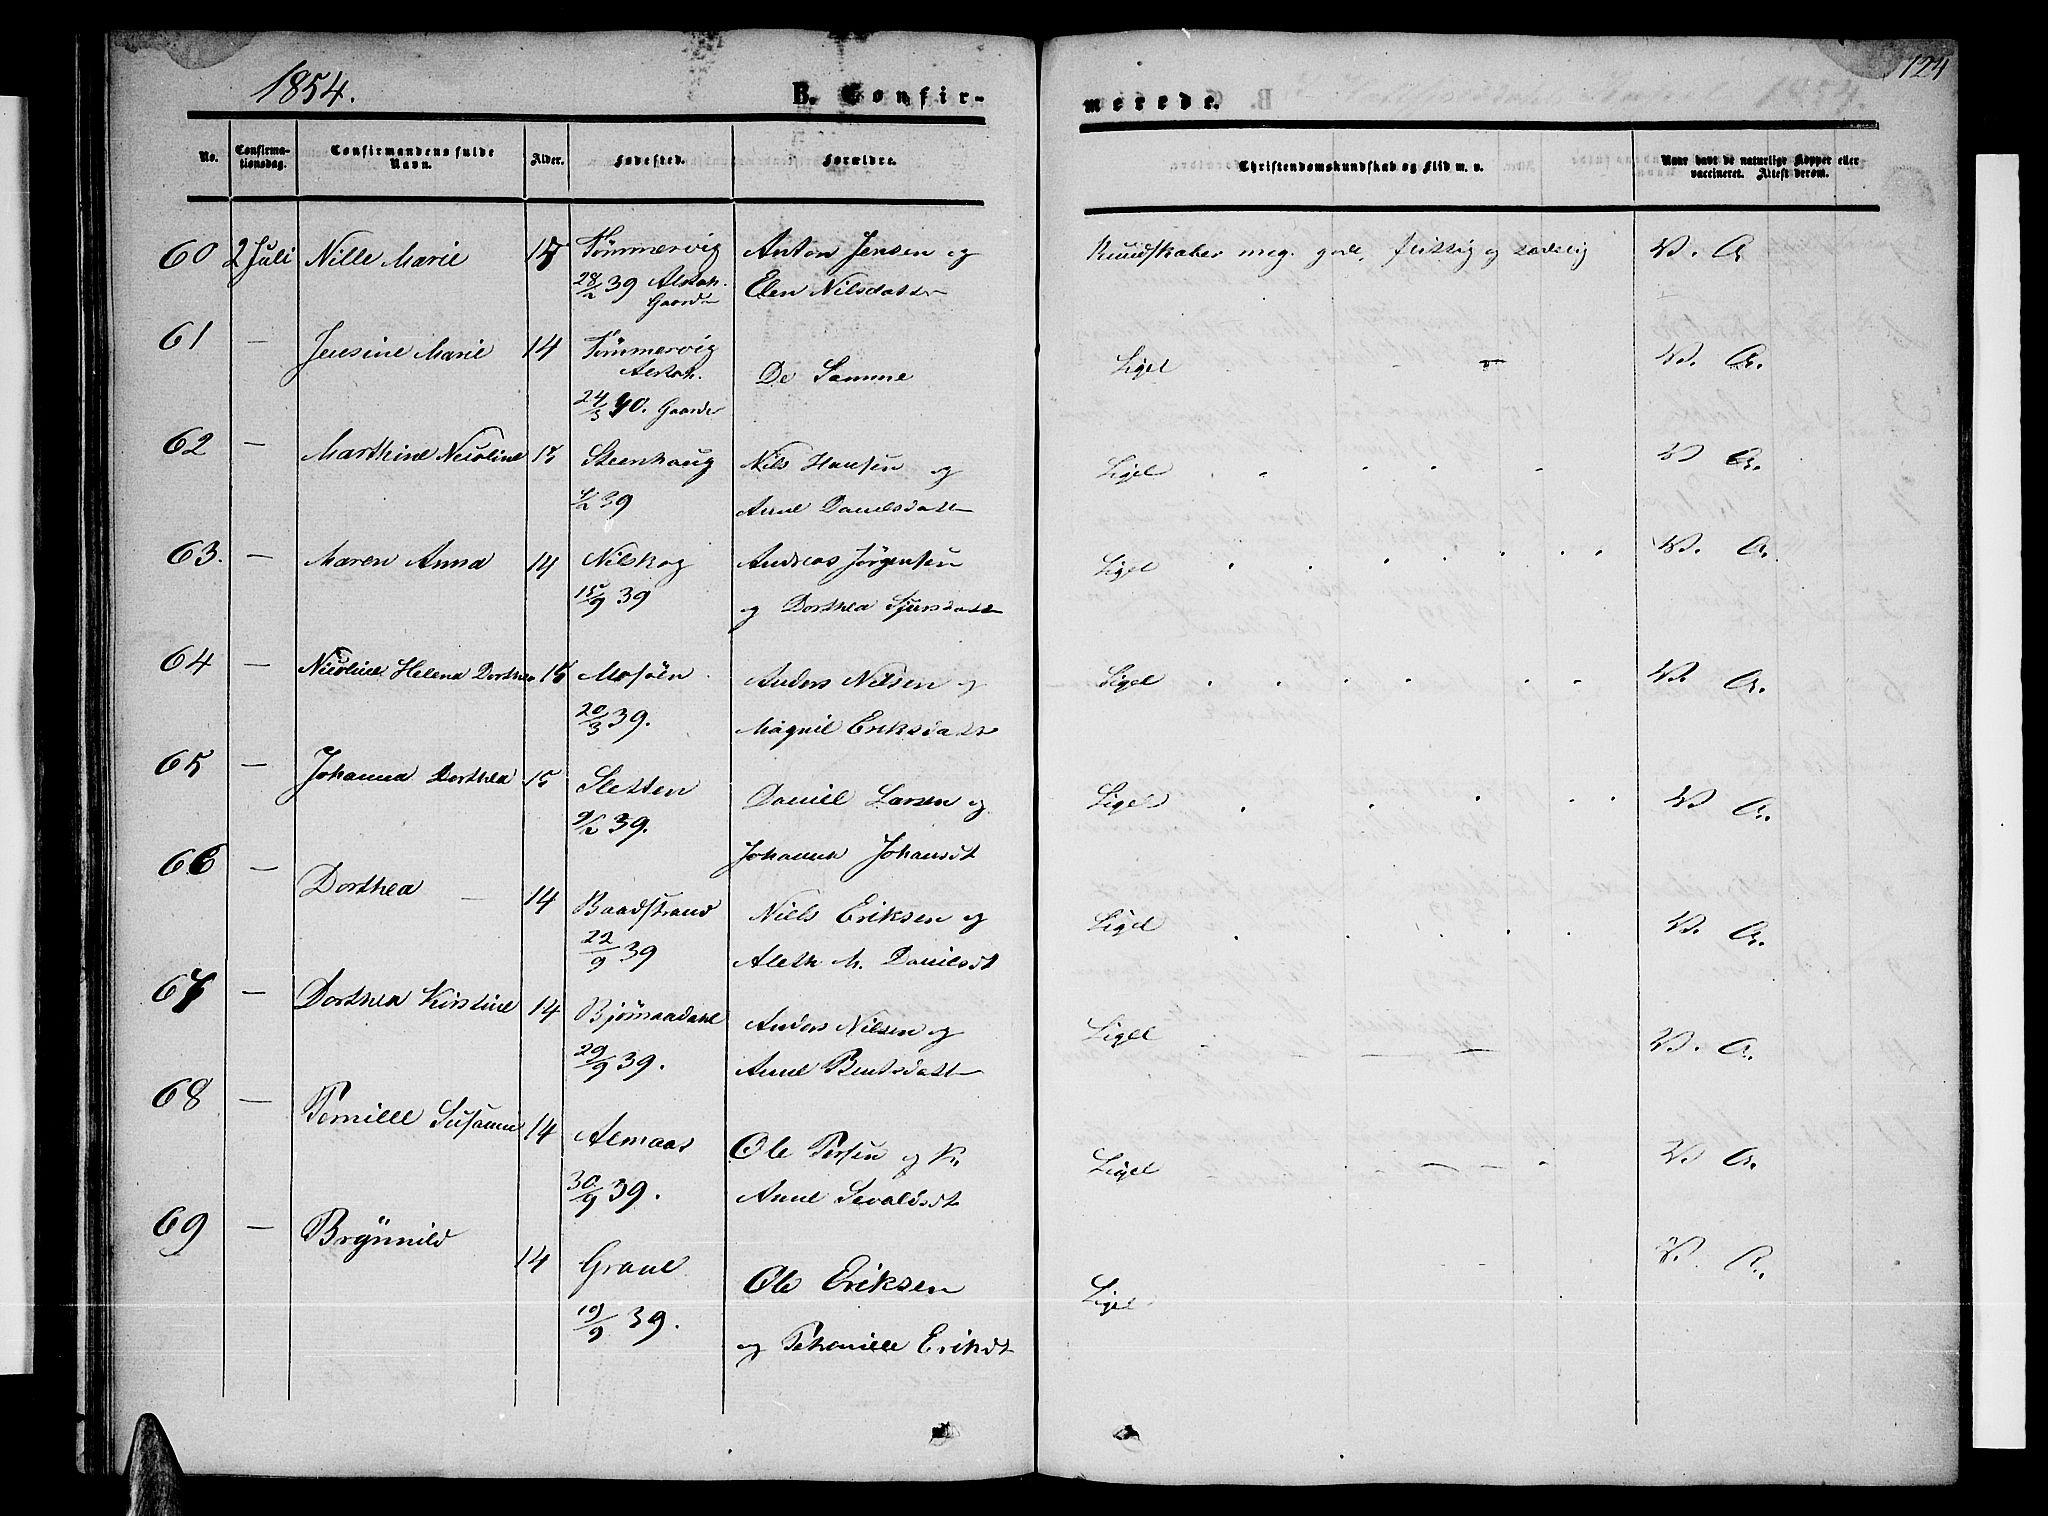 1854.
B. Confir-
merede.
124
No.
Confirma-
tionsdag.
Confirmandens fulde
Navn.
Alder.
Fødested.
Forældre.
Christendomskundskab og Flid m. v.
Naar havt de naturlige Kopper eller
vaccineret. Attest derom.
60 2 Juli Nille Marie 15 Tømmervig Anton Jensen og
28/2 39 Alstah. Elen Nilsdatt
Gaard
Kundskaber meg. gode, flittig og sædelig V. A.
61 — Jensine Marie 14 Tømmervig
Alstah. De Samme
24/3 40. Gaard
Ligel V. A.
62 — Marthine Nicoline 15 Steenhaug Nils Hansen og
39 Anne Danielsdatt
Ligel V A.
63. — Maren Anna 14 Nilskog Andreas Jørgensen
15/9 39 og Dorthea Sjursdatt
Ligel V. A.
64 — Nicoline Helena Dorthea 15 Mosøen Anders Nilsen og
20/3 39. Magnil Eriksdatt
Ligel V. A.
65 — Johanna Dorthea 15 Sletten Daniel Larsen og
9/2 39. Johanna Johansdt
Ligel V A.
66 — Dorthea 14 Baadstrand Niels Eriksen og
22/9 39 Aleth M. Danielsdt
Ligel V. A.
67 — Dorthea Kirstine 14 Bjørnaadahl Anders Nilsen og
29/9 39. Anne Bentsdatt
Ligel V. A.
68 — Pernille Susanne 14 Almaas Ole Persen og K.
30/9 39. Anne Sivaldsdt
Ligel V A.
69 — Brynnild 14 Grane Ole Eriksen
19/9 39. og Pehernille Eriksdt
Ligel V. A.